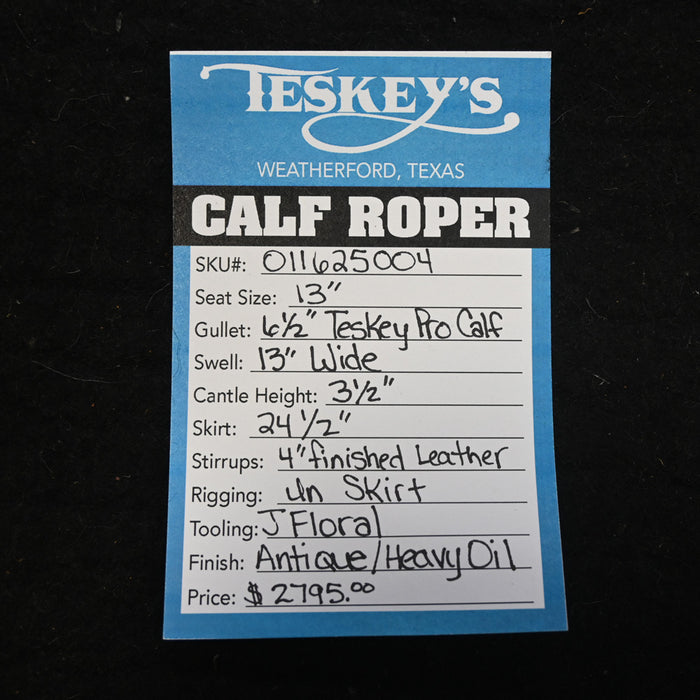 TESKEY'S
WEATHERFORD, TEXAS
CALF ROPER
SKU#: 011625004
Seat Size: 13"
Gullet: 6½" Teskey Pro Calf
Swell: 13" Wide
Cantle Height: 3½"
Skirt: 24 1/2"
Stirrups: 4" finished Leather
Rigging: In Skirt
Tooling: J Floral
Finish: Antique/Heavy Oil
Price: $2795.00